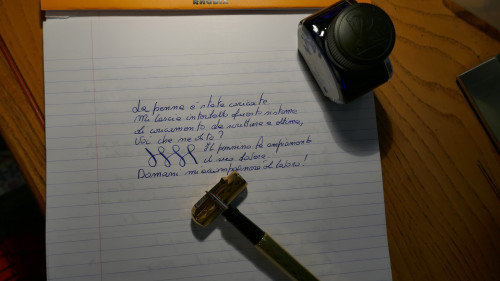 La penna è stata caricata
Mi lascia interdetto questo sistema
di caricamento, che scrittura e ottima,
Voi che ne dite?
Il pennino fa ampiamente
il suo dovere.
Domani mi accompagnerà al lavoro!